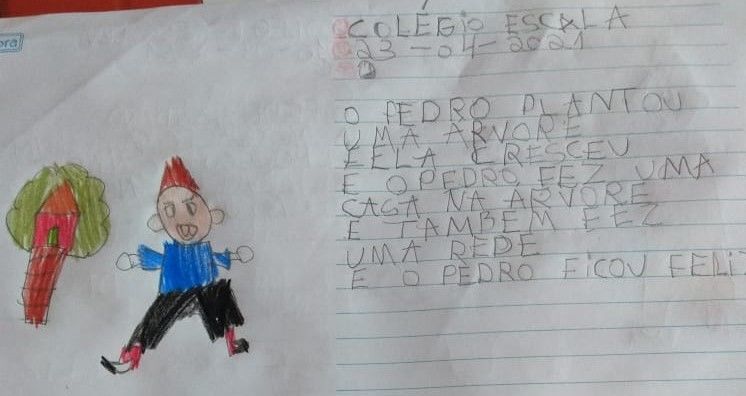 ora
COLÉGIO ESCALA
23-04-2021
O PEDRO PLANTOU
UMA ARVORE
E ELA CRESCEU
E O PEDRO FEZ UMA
CASA NA ARVORE
E TAMBEM FEZ
UMA REDE
E O PEDRO FICOU FELIZ